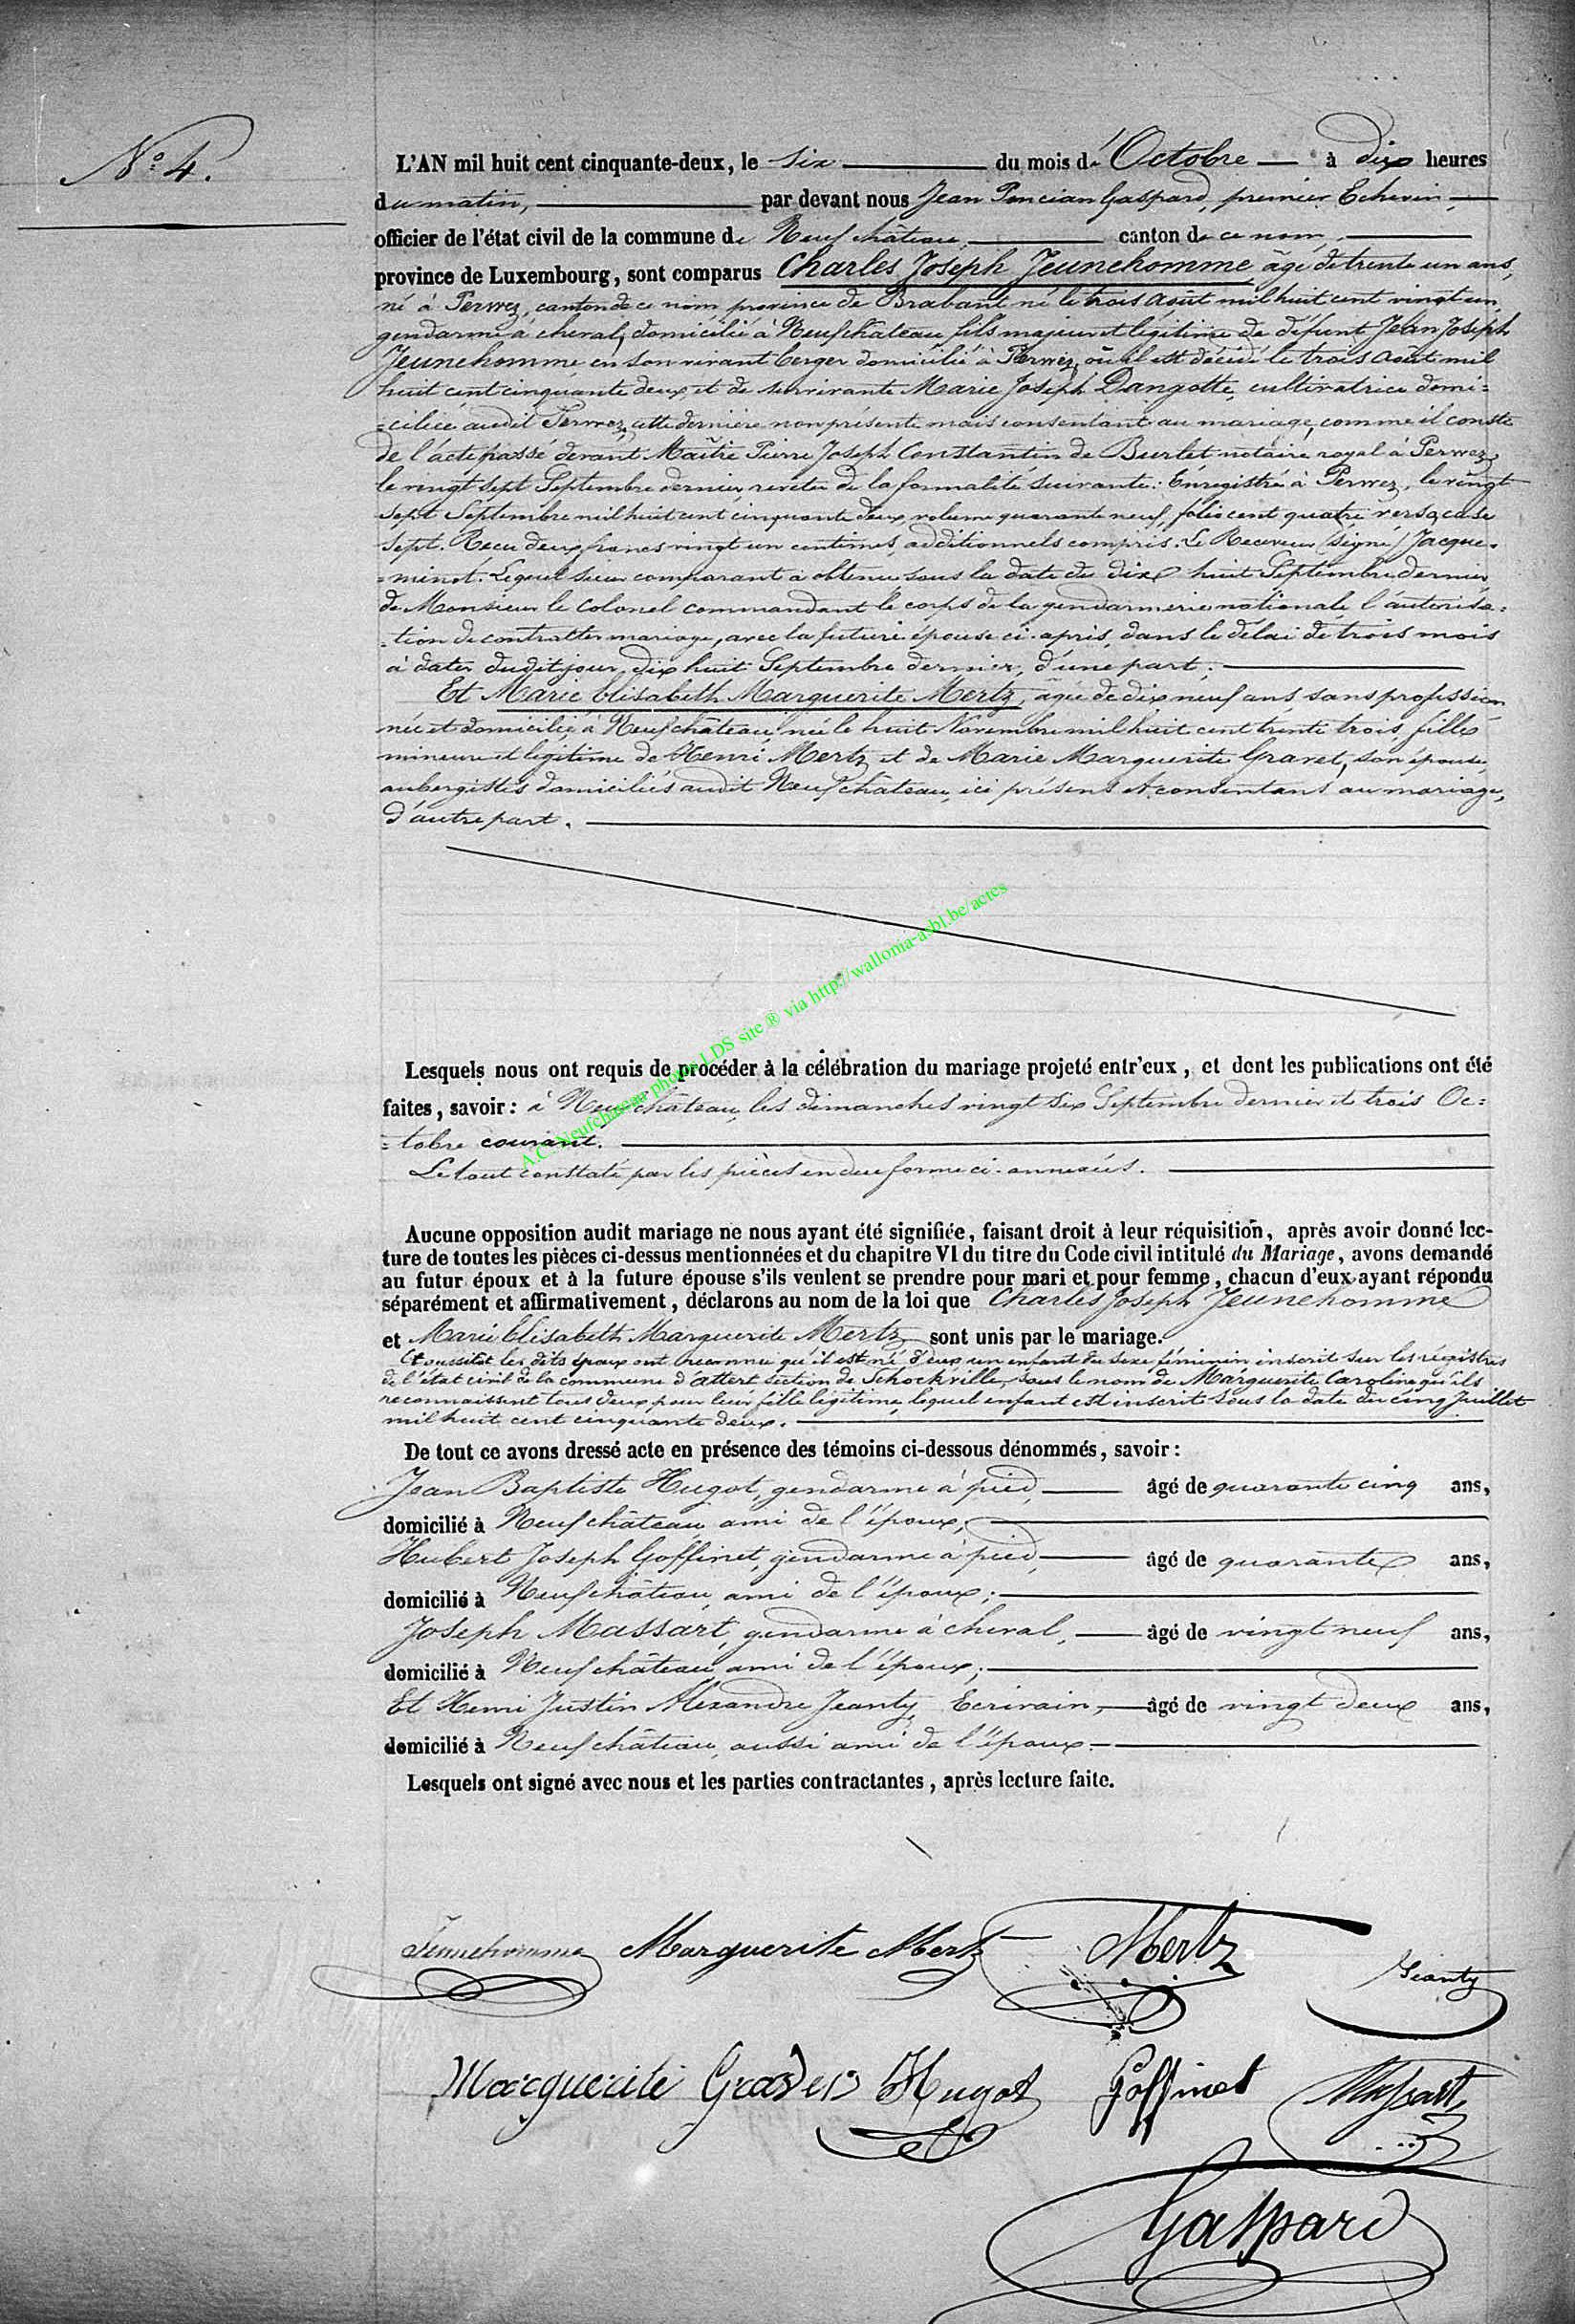 N° 4.
L'AN mil huit cent cinquante-deux, le six du mois d'Octobre à dix heures
du matin, par devant nous Jean Poncian Gaspard, premier Echevin,
officier de l'état civil de la commune de Neufchâteau, canton de ce nom,
province de Luxembourg, sont comparus Charles Joseph Jeunehomme âgé de trente un ans,
né à Perwez, canton de ce nom, province de Brabant né le trois Août mil huit cent vingt un,
gendarme à cheval, domicilié à Neufchâteau fils majeur et légitime de défunt Jean Joseph
Jeunehomme en son vivant berger domicilié à Perwez, où il est décédé le trois Août mil
huit cent cinquante deux et de survivante Marie Joseph Dangotte, cultivatrice domi=
=ciliée audit Perwez, cette dernière non présente mais consentant au mariage, comme il conste
de l'acte passé devant Maître Pierre Joseph Constantin de Burlet notaire royal à Perwez
le vingt sept Septembre dernier, revetu de la formalité suivante: Enregistré à Perwez, le vingt
sept Septembre mil huit cent cinquante deux, volume quarante neuf, folio cent quatre verso, case
sept. Recu deux francs vingt un centimes, additionnels compris. Le Receveur (signé) Jacque=
=minot. Lequel sieur comparant a obtenu, sous la date du dix huit Septembre dernier,
de Monsieur le Colonel commandant le corps de la gendarmerie nationale l'autorisa=
=tion de contracter mariage, avec la future épouse ci-après, dans le délai de trois mois
à dater dudit jour, dix huit Septembre dernier, d'une part;
Et Marie Elisabeth Marguerite Mertz, âgée de dix neuf ans, sans profession
née et domiciliée à Neufchâteau, née le huit Novembre mil huit cent trente trois, fille
mineure et légitime de Henri Mertz et de Marie Marguerite Gravet, son épouse,
aubergistes domiciliés audit Neufchâteau, ici présens et consentans au mariage,
d'autre part.
A.C. Neufchateau photos LDS site ® via http://wallonia-asbl.be/actes
Lesquels nous ont requis de procéder à la célébration du mariage projeté entr'eux, et dont les publications ont été
faites, savoir: à Neufchâteau, les dimanches vingt six Septembre dernier et trois Oc=
=tobre courant.
Le tout constaté par les pièces en due forme ci-annexées.
Aucune opposition audit mariage ne nous ayant été signifiée, faisant droit à leur réquisition, après avoir donné lec-
ture de toutes les pièces ci-dessus mentionnées et du chapitre VI du titre du Code civil intitulé du Mariage, avons demandé
au futur époux et à la future épouse s'ils veulent se prendre pour mari et pour femme, chacun d'eux ayant répondu
séparément et affirmativement, déclarons au nom de la loi que Charles Joseph Jeunehomme
et Marie Elisabeth Marguerite Mertz sont unis par le mariage.
Et aussitôt les dits époux ont reconnu qu'il est né d'eux un enfant du sexe féminin inscrit sur les régistres
de l'état civil de la commune d'Attert section de Schockville, sous le nom de Marguerite Caroline qu'ils
reconnaissent tous deux pour leur fille légitime, lequel enfant est inscrit sous la date du cinq Juillet
mil huit cent cinquante deux.
De tout ce avons dressé acte en présence des témoins ci-dessous dénommés, savoir:
Jean Baptiste Hugot, gendarme à pied, âgé de quarante cinq ans,
domicilié à Neufchâteau ami de l'époux;
Hubert Joseph Goffinet, gendarme à pied, âgé de quarante ans,
domicilié à Neufchâteau, ami de l'époux;
Joseph Massart, gendarme à cheval, âgé de vingt neuf ans,
domicilié à Neufchâteau, ami de l'époux;
Et Henri Justin Alexandre Jeanty, Ecrivain, âgé de vingt deux ans,
domicilié à Neufchâteau, aussi ami de l'époux
Lesquels ont signé avec nous et les parties contractantes, après lecture faite.
Jeunehomme Marguerite Mertz Mertz Jeanty
Marguerite Gravet Hugot Goffinet Massart
Gaspard